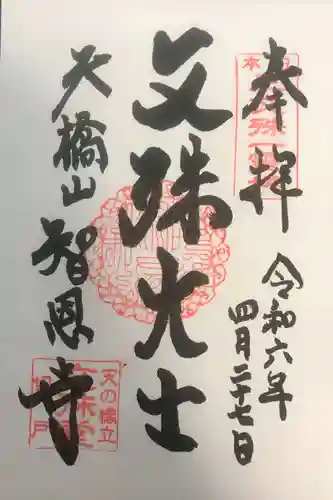 奉拝
令和六年
四月二十七日
文殊大士
天橋山
智恩寺
天の橋立